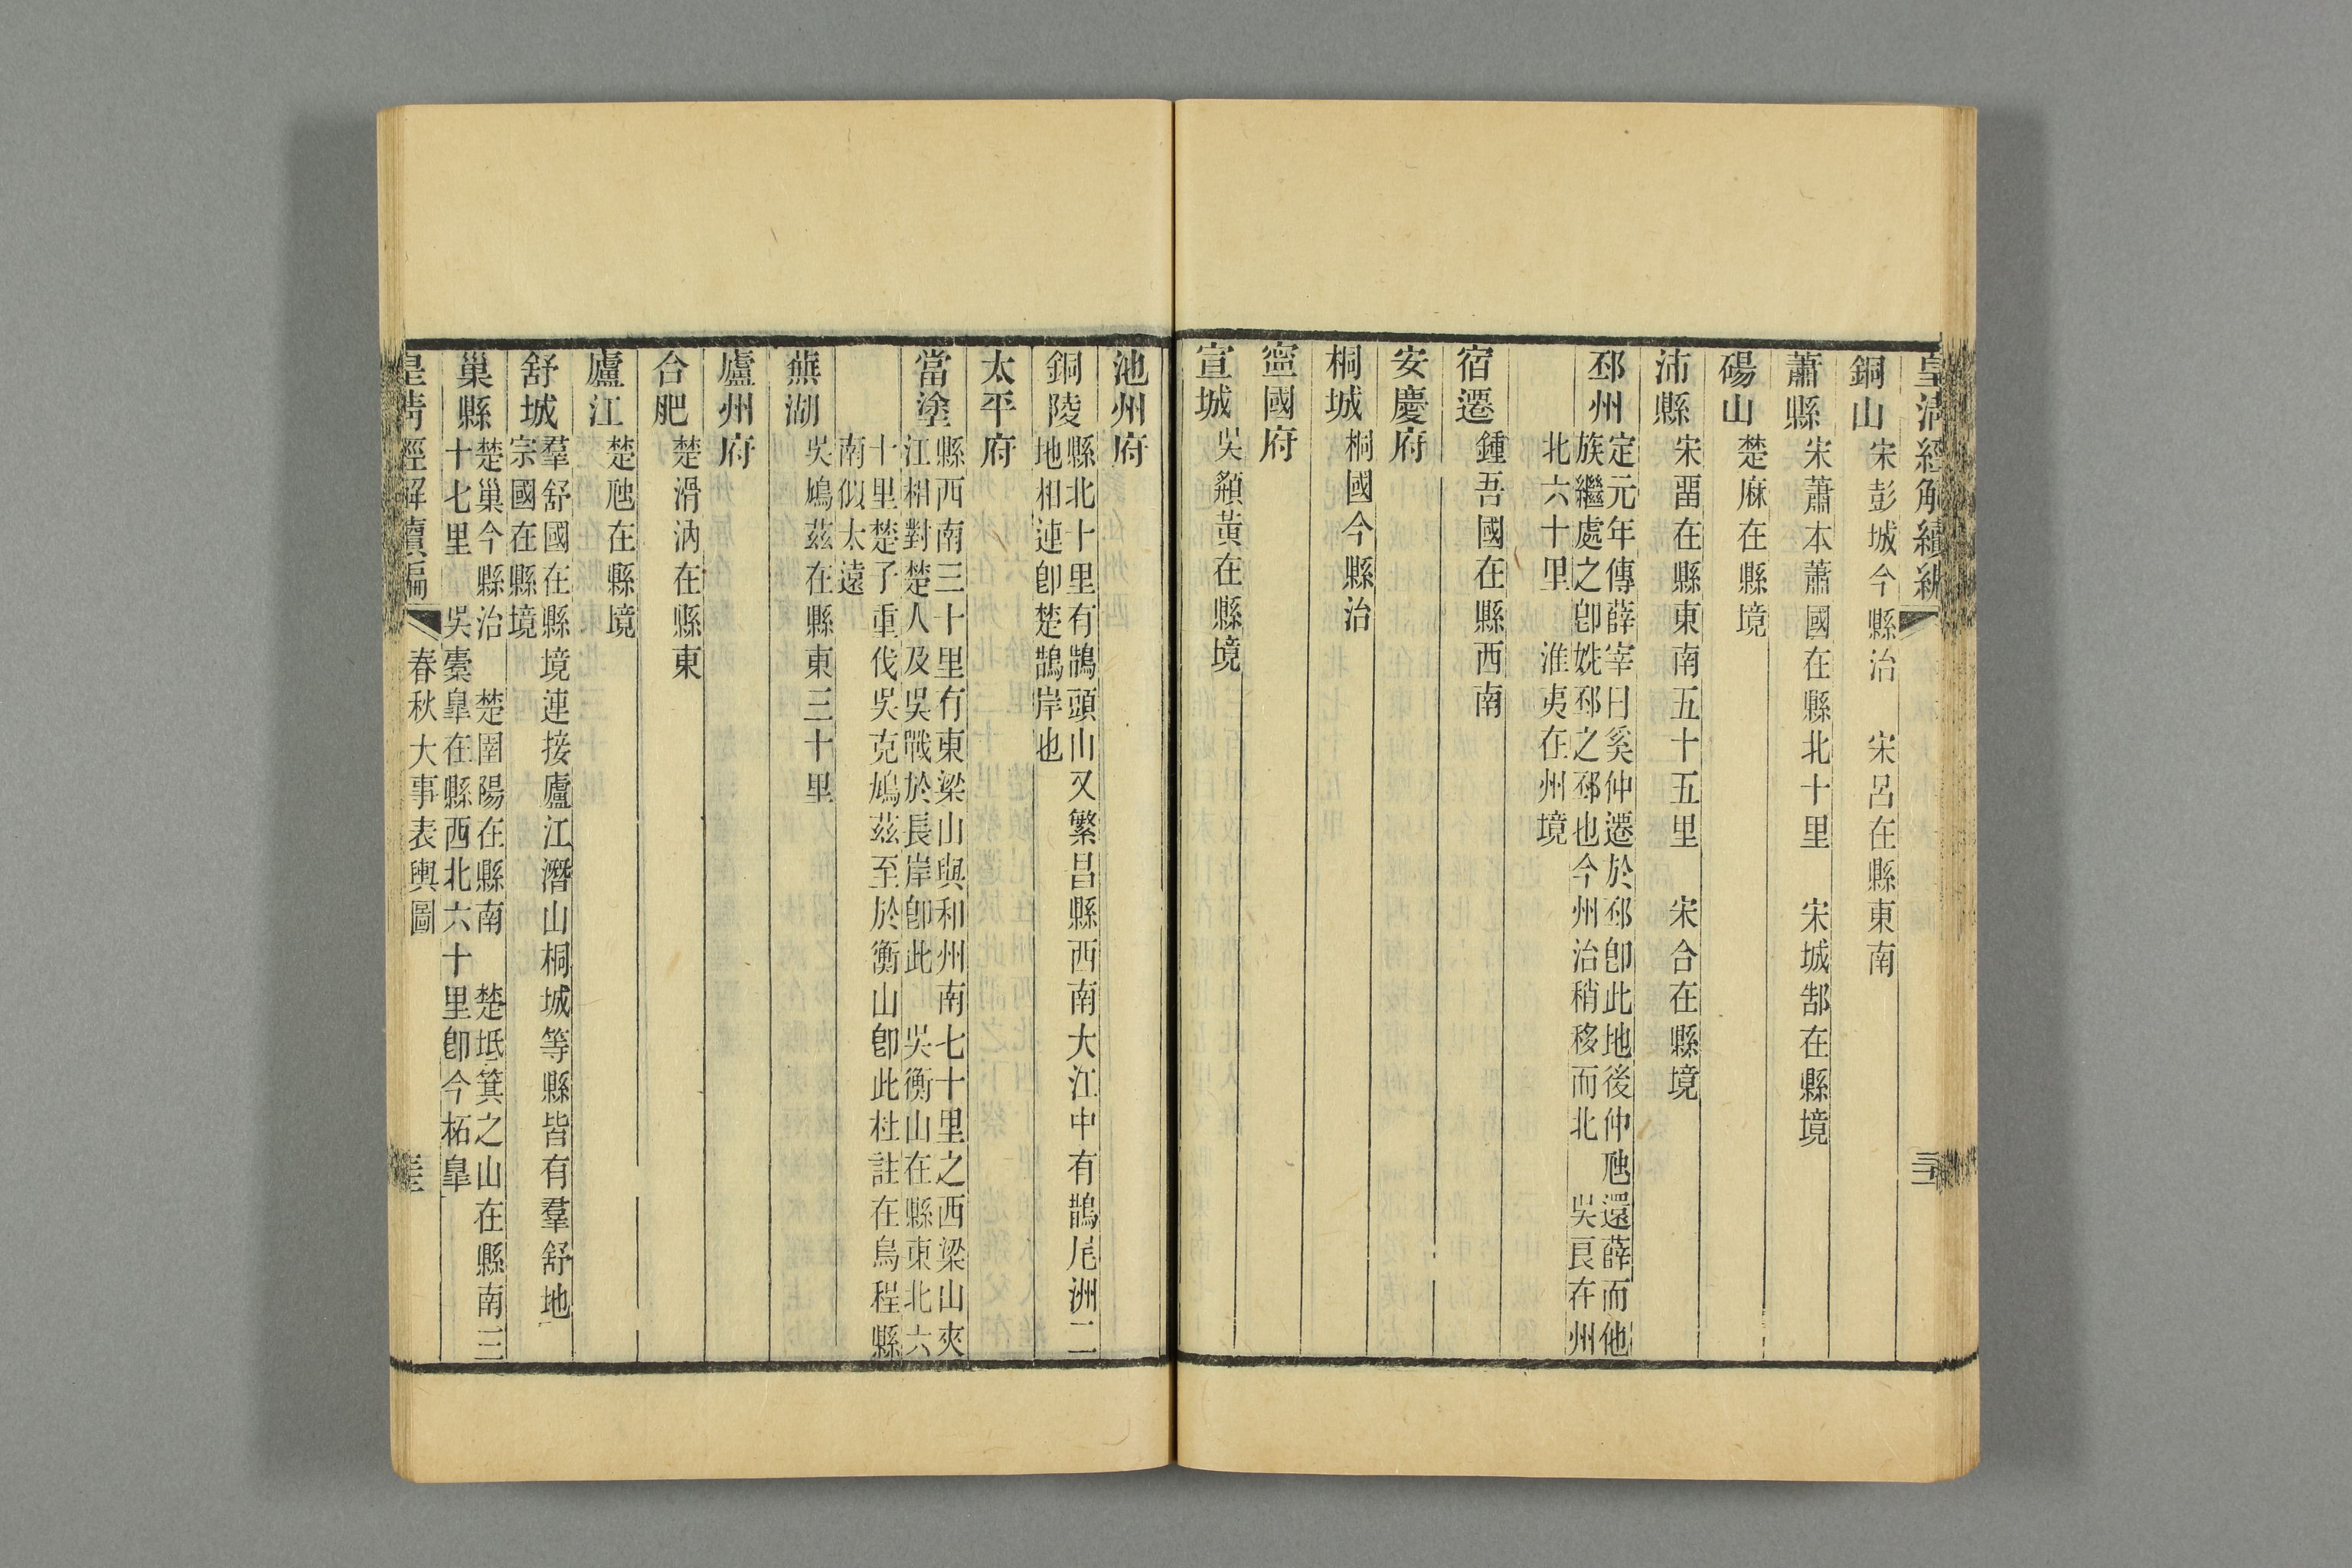 皇清經解續編
銅山 宋彭城今縣治 宋呂在縣東南
蕭縣 宋蕭本蕭國在縣北十里 宋城郜在縣境
碭山 楚麻在縣境
沛縣 宋畱在縣東南五十五里 宋合在縣境
邳州 定元年傳薛宰曰奚仲遷於邳卽此地後仲虺還薛而他
族繼處之卽姺邳之邳也今州治稍移而北 吳良在州
北六十里 淮夷在州境
宿遷 鍾吾國在縣西南
安慶府
桐城 桐國今縣治
寍國府
宣城 吳纇黃在縣境
池州府
銅陵 縣北十里有鵲頭山又繁昌縣西南大江中有鵲尾洲二
地相連卽楚鵲岸也
太平府
當塗 縣西南三十里有東梁山與和州南七十里之西梁山夾
江相對楚人及吳戰於長岸卽此 吳衡山在縣東北六
十里楚子重伐吳克鳩茲至於衡山卽此杜註在烏程縣
南似太遠
蕪湖 吳鳩茲在縣東三十里
廬州府
合肥 楚滑汭在縣東
廬江 楚虺在縣境
舒城 羣舒國在縣境連接廬江潛山桐城等縣皆有羣舒地
宗國在縣境
巢縣 楚巢今縣治 楚圉陽在縣南 楚坻箕之山在縣南三
十七里 吳橐皐在縣西北六十里卽今柘皐
皇清經解續編 春秋大事表輿圖